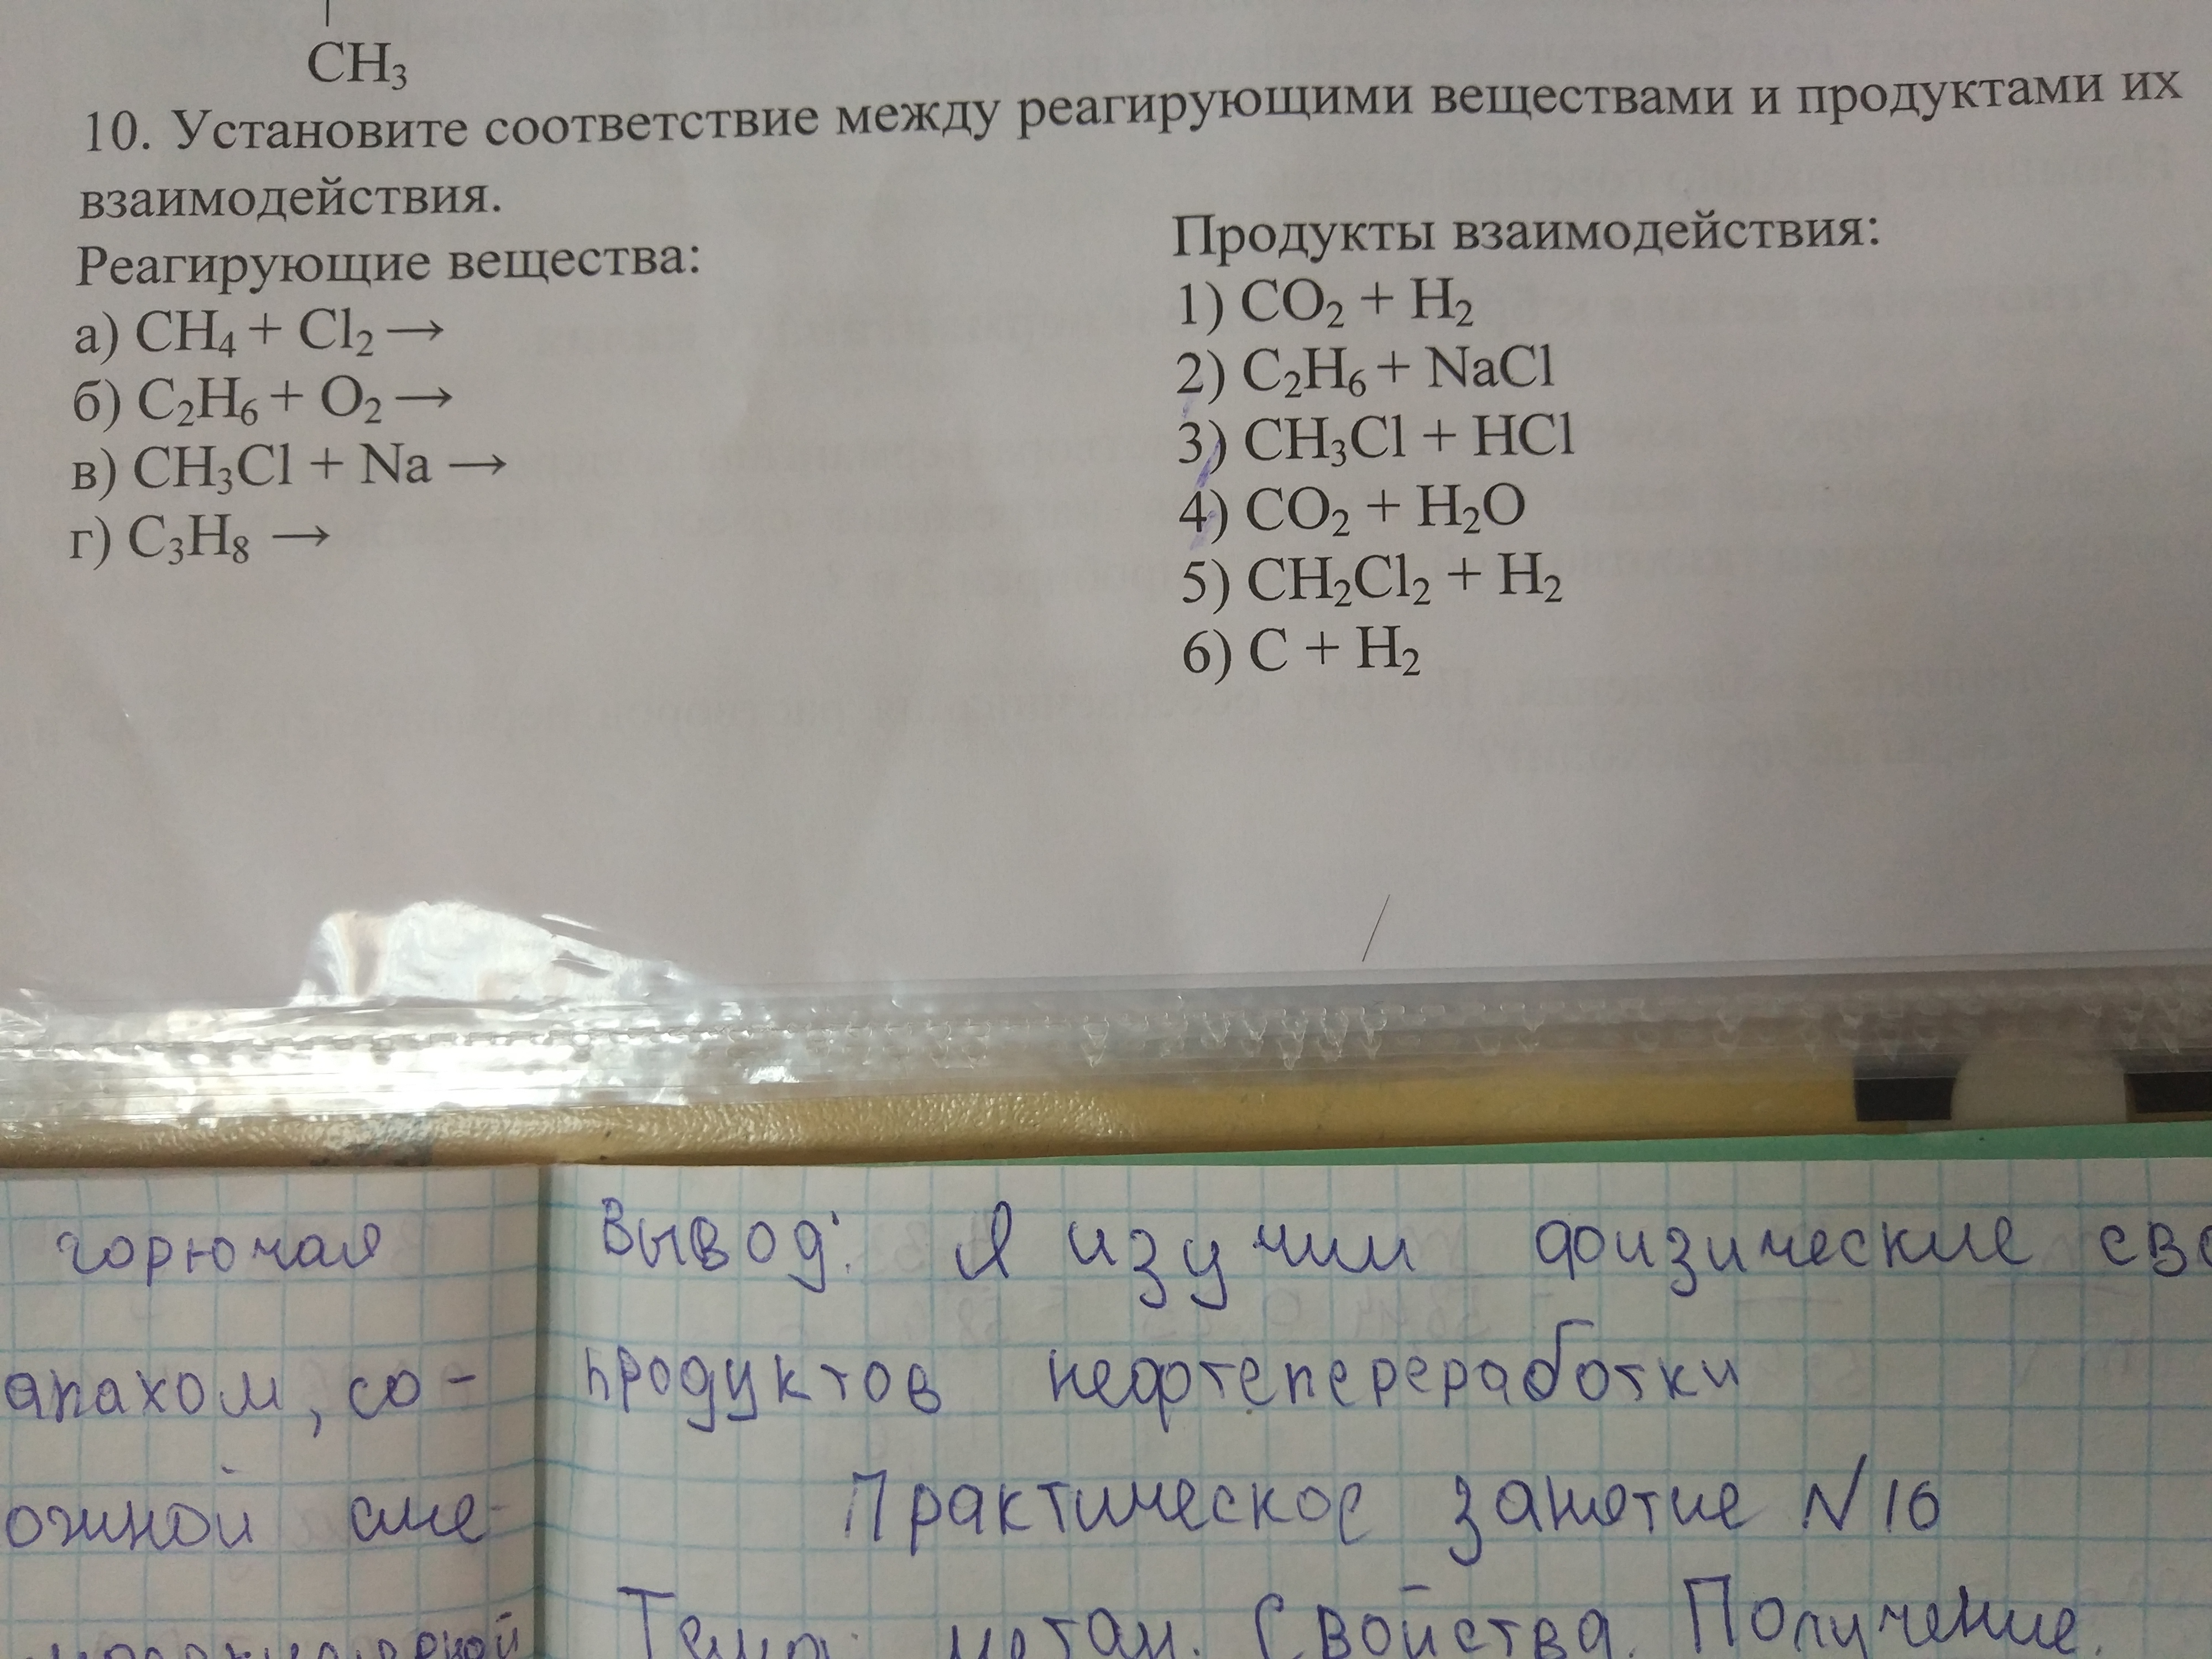 CH₃
10. Установите соответствие между реагирующими веществами и продуктами их
взаимодействия.
Реагирующие вещества:
а) CH₄ + Cl₂ →
б) C₂H₆ + O₂ →
в) CH₃Cl + Na →
г) C₃H₈ →
Продукты взаимодействия:
1) CO₂ + H₂
2) C₂H₆ + NaCl
3) CH₃Cl + HCl
4) CO₂ + H₂O
5) CH₂Cl₂ + H₂
6) C + H₂
горючая
апахом, со-
ожной сме-
Вывод: Я изучил физические сво
продуктов нефтепереработки
Практическое занятие №16
Тема: метан. Свойства. Получение.